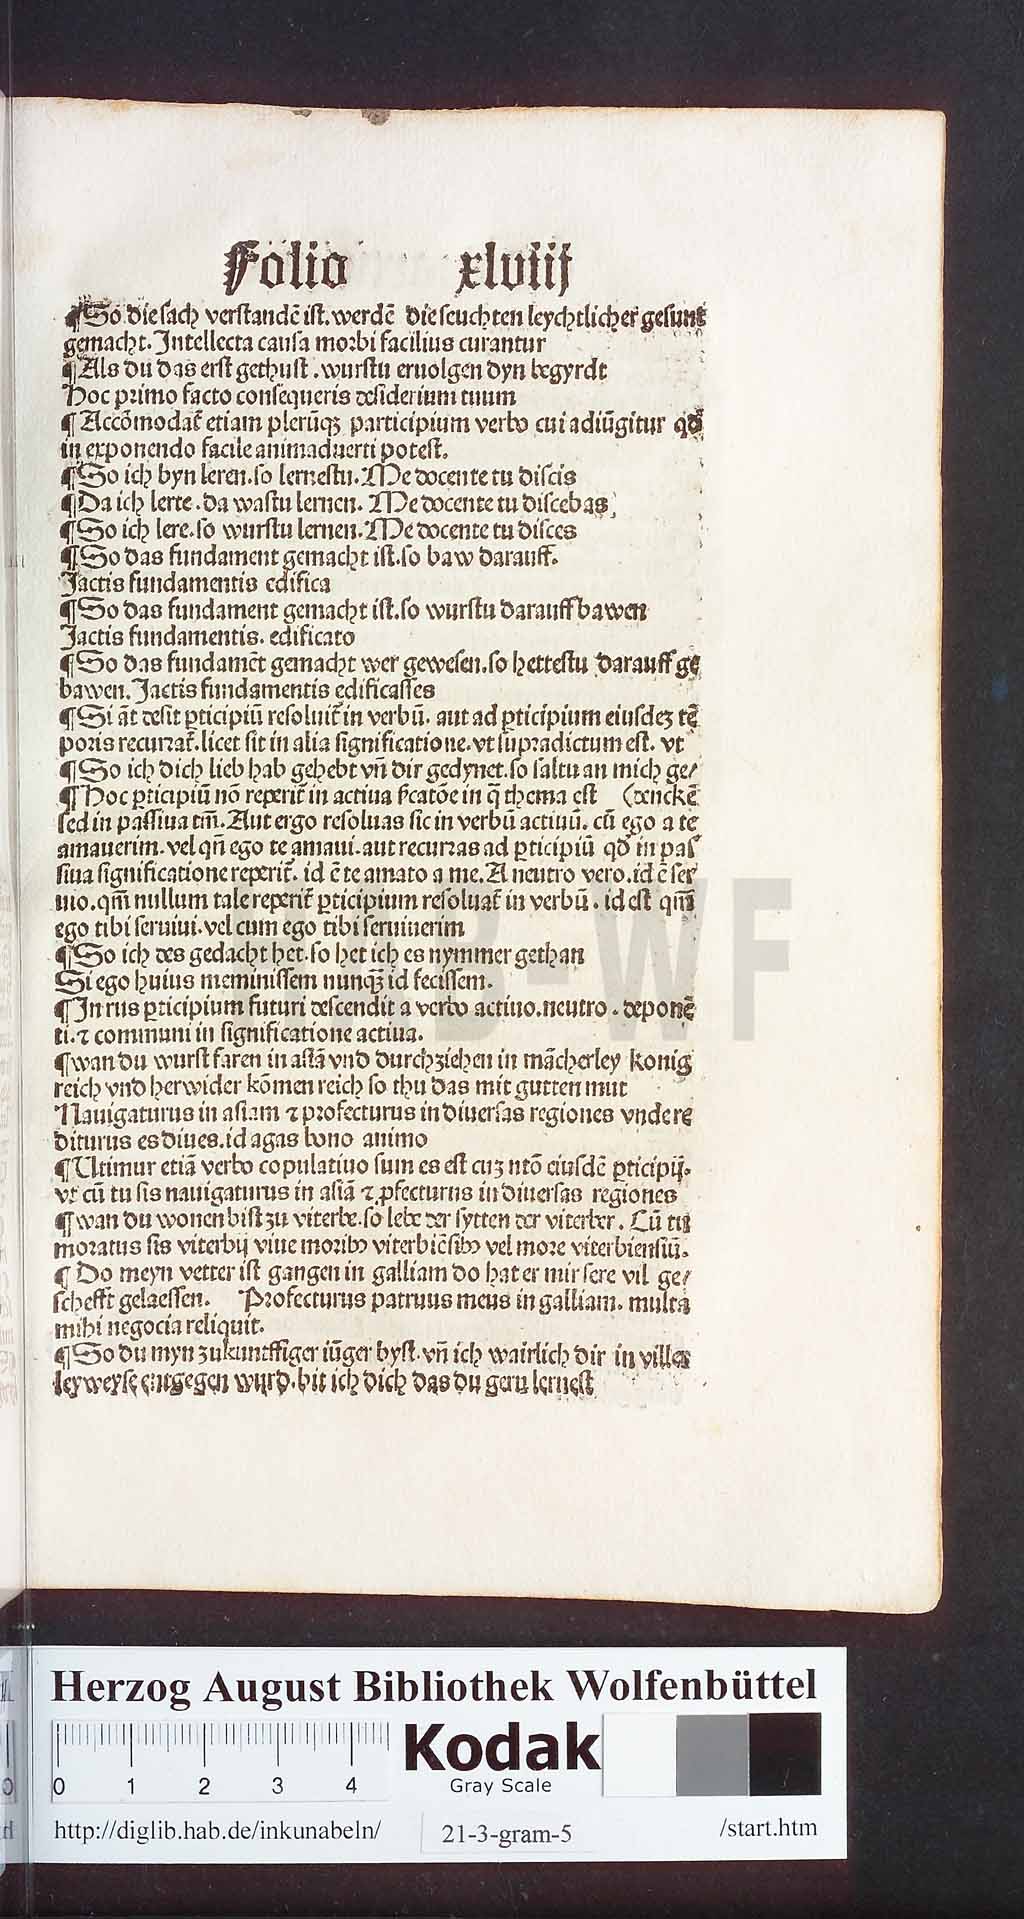 Folio xlviij
¶ So die sach verstandē ist. werdē die seuchten leychtlicher gesunt
gemacht. Intellecta causa morbi facilius curantur
¶ Als du das erst gethust . wurstu eruolgen dyn begyrdt
Hoc primo facto consequeris desiderium tuum
¶ Accōmodat̄ etiam plerūqꝫ participium verbo cui adiūgitur qđ
in exponendo facile animaduerti potest.
¶ So ich byn leren. so lernestu. Me docente tu discis
¶ Da ich lerte . da wastu lernen. Me docente tu discebas
¶ So ich lere. so wurstu lernen. Me docente tu disces
¶ So das fundament gemacht ist. so baw darauff.
Jactis fundamentis edifica
¶ So das fundament gemacht ist. so wurstu darauff bawen
Jactis fundamentis. edificato
¶ So das fundamēt gemacht wer gewesen. so hettestu darauff ge
bawen. Jactis fundamentis edificasses
¶ Si āt desit ꝑticipiū resoluit̄ in verbū. aut ad ꝑticipium eiusdeꝫ tē
poris recurrat̄. licet sit in alia significatione. vt supradictum est. vt
¶ So ich dich lieb hab gehebt vn̄ dir gedynet. so saltu an mich ge/
¶ Hoc ꝑticipiū nō reperit̄ in actiua ficatōe in q̄ thema est (denckē
sed in passiua tm̄. Aut ergo resoluas sic in verbū actiuū. cū ego a te
amauerim. vel qn̄ ego te amaui. aut recurras ad ꝑticipiū qđ in pas
siua significatione reperit̄. id ē te amato a me. A neutro vero. id ē ser
uio. qm̄ nullum tale reperit̄ ꝑticipium resoluat̄ in verbū . id est qm̄
ego tibi seruiui. vel cum ego tibi seruiuerim
¶ So ich des gedacht het. so het ich es nymmer gethan
Si ego huius meminissem nunqꝫ id fecissem.
¶ In rus ꝑticipium futuri descendit a verbo actiuo. neutro . deponē
ti. ⁊ communi in significatione actiua.
¶ wan du wurst faren in asiā vnd durchziehen in mācherley konig
reich vnd herwider kōmen reich so thu das mit gutten mut
Nauigaturus in asiam ⁊ profecturus in diuersas regiones vnde re
diturus es diues. id agas bono animo
¶ Utimur etiā verbo copulatiuo sum es est cuꝫ ntō eiusdē ꝑticipij.
vt cū tu sis nauigaturus in asiā ⁊ ꝓfecturus in diuersas regiones
¶ wan du wonen bist zu viterbe. so lebe der sytten der viterber . Cū tu
moratus sis viterbij viue moribꝰ viterbiēsibꝰ vel more viterbiensiū.
¶ Do meyn vetter ist gangen in galliam do hat er mir sere vil ge/
schefft gelaessen. Profecturus patruus meus in galliam. multa
mihi negocia reliquit.
¶ So du myn zukunttfiger iūger byst. vn̄ ich wairlich dir in viller
leyweyse entgegen wurd. bit ich dich das du gern lernest
HAB-WF
Herzog August Bibliothek Wolfenbüttel
0 1 2 3 4
Kodak
Gray Scale
http://diglib.hab.de/inkunabeln/ 21-3-gram-5 /start.htm